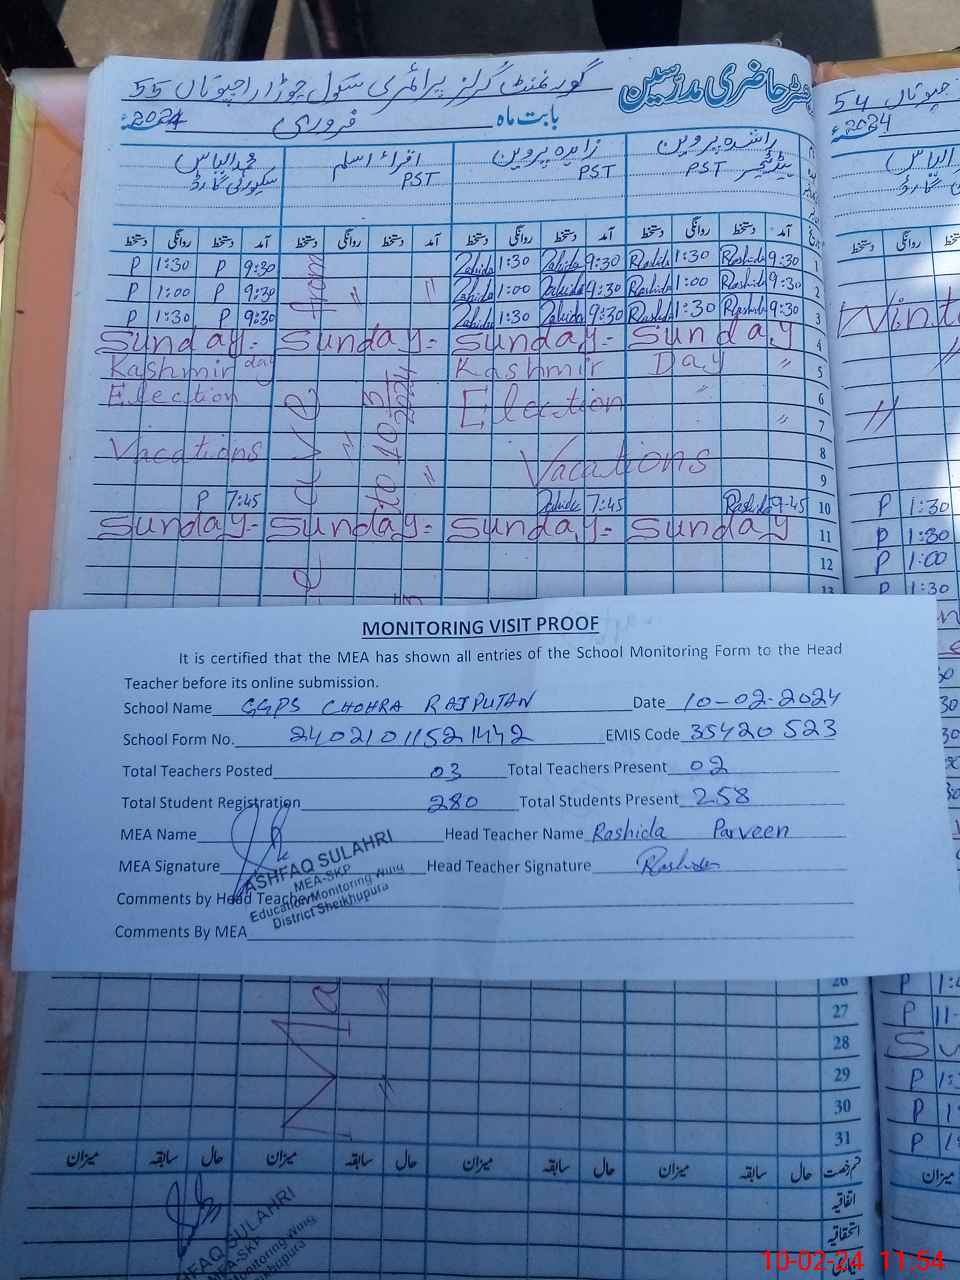 رجسٹر حاضری مدرسین گورنمنٹ گرلز پرائمری سکول چوڑا راجپوتاں 55
بابت ماہ فروری 2024ء
راشدہ پروین زاہدہ پروین اقراء اسلم محمد الیاس
ہیڈ ٹیچر PST PST PST سکیورٹی گارڈ
آمد دستخط روانگی دستخط آمد دستخط روانگی دستخط آمد دستخط روانگی دستخط آمد دستخط روانگی دستخط
P 1:30 P 9:30 from Zahida 1:30 Zahida 9:30 Rashida 1:30 Rashida 9:30 1
P 1:00 P 9:30 " " Zahida 1:00 Zahida 9:30 Rashida 1:00 Rashida 9:30 2
P 1:30 P 9:30 Zahida 1:30 Zahida 9:30 Rashida 1:30 Rashida 9:30 3
Sunday- Sunday- Sunday- Sunday 4
Kashmir day Kashmir Day " 5
Election Election " 6
" 7
Vacations Vacations 8
9
P 7:45 to 10 Zahida 7:45 Rashida 9-45 10
Sunday- Sunday- Sunday- Sunday 11
12
13
54
2024
P 1:30
P 1:30
P 1:00
P 1:30
MONITORING VISIT PROOF
It is certified that the MEA has shown all entries of the School Monitoring Form to the Head
Teacher before its online submission.
School Name GGPS CHOHRA RAJPUTAN Date 10-02-2024
School Form No. 24021011521442 EMIS Code 35420523
Total Teachers Posted 03 Total Teachers Present 02
Total Student Registration 280 Total Students Present 258
MEA Name Head Teacher Name Rashida Parveen
MEA Signature Head Teacher Signature Rashida
ASHFAQ SULAHRI
MEA-SKP
Education Monitoring Wing
District Sheikhupura
Comments by Head Teacher
Comments By MEA
26
27
28
29
30
31
قسم رخصت حال سابقہ میزان حال سابقہ میزان حال سابقہ میزان حال سابقہ میزان
اتفاقیہ
استحقاقیہ
بیماری
ASHFAQ SULAHRI
MEA-SKP
Monitoring Wing
Sheikhupura
میزان
10-02-24 11:54